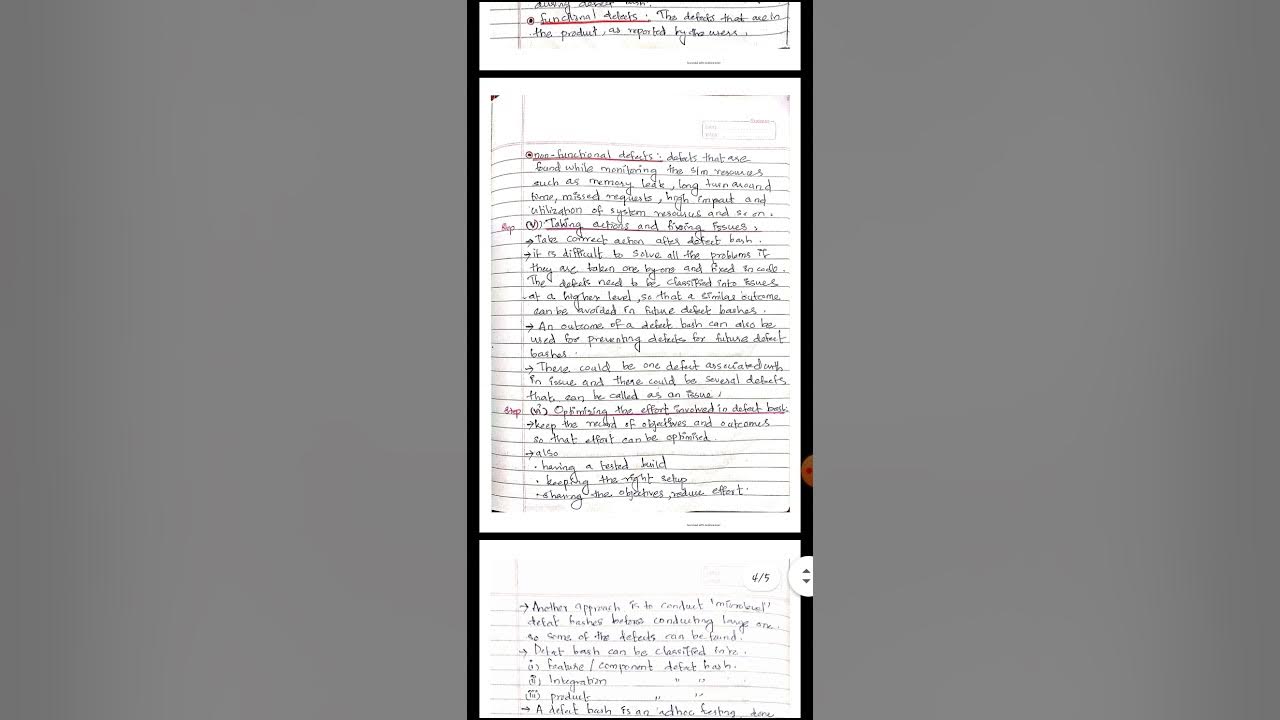 during defect bash.
• functional defects : The defects that are in
the product, as reported by the users.
• non-functional defects : defects that are
found while monitoring the s/m resources
such as memory leak, long turn around
time, missed requests, high impact and
utilization of system resources and so on.
Step (V) Taking actions and fixing issues,
→ Take correct action after defect bash.
→ it is difficult to solve all the problems if
they are taken one by one and fixed in code.
The defects need to be classified into issues
at a higher level, so that a similar outcome
can be avoided in future defect bashes.
→ An outcome of a defect bash can also be
used for preventing defects for future defect
bashes.
→ There could be one defect associated with
in issue and there could be several defects
that can be called as an issue.
Step (vi) Optimising the effort involved in defect bash.
→ keep the record of objectives and outcomes
so that effort can be optimised.
→ also
• having a tested build
• keeping the right setup
• sharing the objectives, reduce effort.
4/5
→ Another approach is to conduct 'microlevel'
defat bashes before conducting large one.
so some of the defects can be found.
→ Defat bash can be classified into.
(i) Feature / component defect bash.
(ii) Integration " "
(iii) product " "
→ A defat bash is an adhoc testing, done